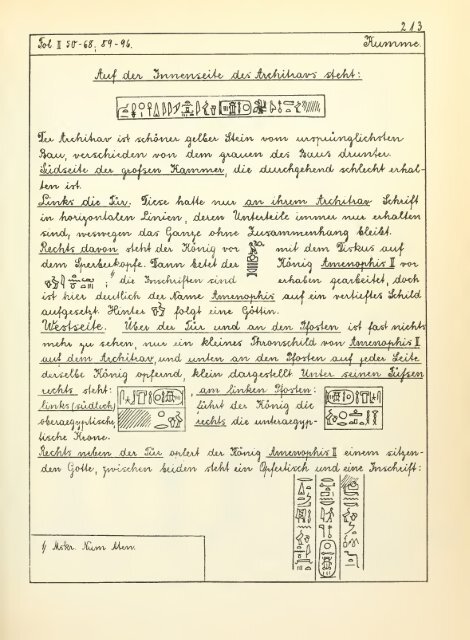 213
Fol II 50-68; 89-96. Kumme.
Auf der Innenseite des Architravs steht:
Der Architrav ist schöner gelber Stein vom ursprünglichsten
Bau, verschieden von dem grauen des Baus drunter.
Südseite der grofsen Kammer, die durchgehend schlecht erhal-
ten ist.
Links die Tür. Diese hatte nur an ihrem Architrav Schrift
in horizontalen Linien, deren Unterteile immer nur erhalten
sind, weswegen das Ganze ohne Zusammenhang bleibt.
Rechts davon steht der König vor mit dem Diskus auf
dem Sperberkopfe. Dann betet der König Amenophis II vor
; die Inschriften sind erhaben gearbeitet, doch
ist hier deutlich der Name Amenophis auf ein vertieftes Schild
aufgesetzt. Hinter folgt eine Göttin.
Westseite. Über der Tür und an den Pfosten ist fast nichts
mehr zu sehen, nur ein kleines Thronschild von Amenophis II
auf dem Architrav, und unten an den Pfosten auf jeder Seite
derselbe König opfernd, klein dargestellt. Unter seinen Füfsen
rechts steht: , am linken Pfosten:
links (südlich) führt der König die
oberaegyptische, rechts die unteraegyp-
tische Krone.
Rechts neben der Tür opfert der König Amenophis II einem sitzen-
den Gotte, zwischen beiden steht ein Opfertisch und eine Inschrift:
1) Mskr. Num